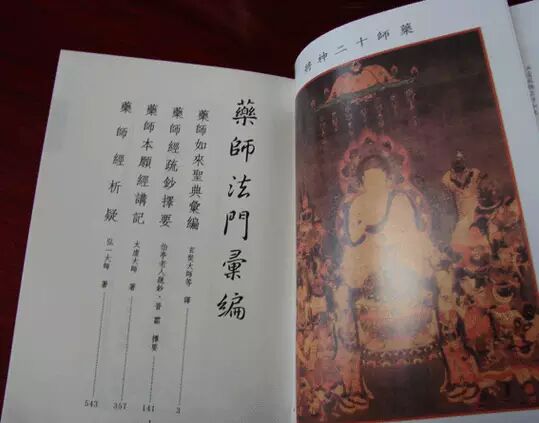 藥師法門彙編
藥師如來聖典彙編 玄奘大師等 譯 3
藥師經疏鈔擇要 伯亭老人疏鈔、普霦 擇要 141
藥師本願經講記 太虛大師 著 357
藥師經析疑 弘一大師 著 543
1
藥師十二神將